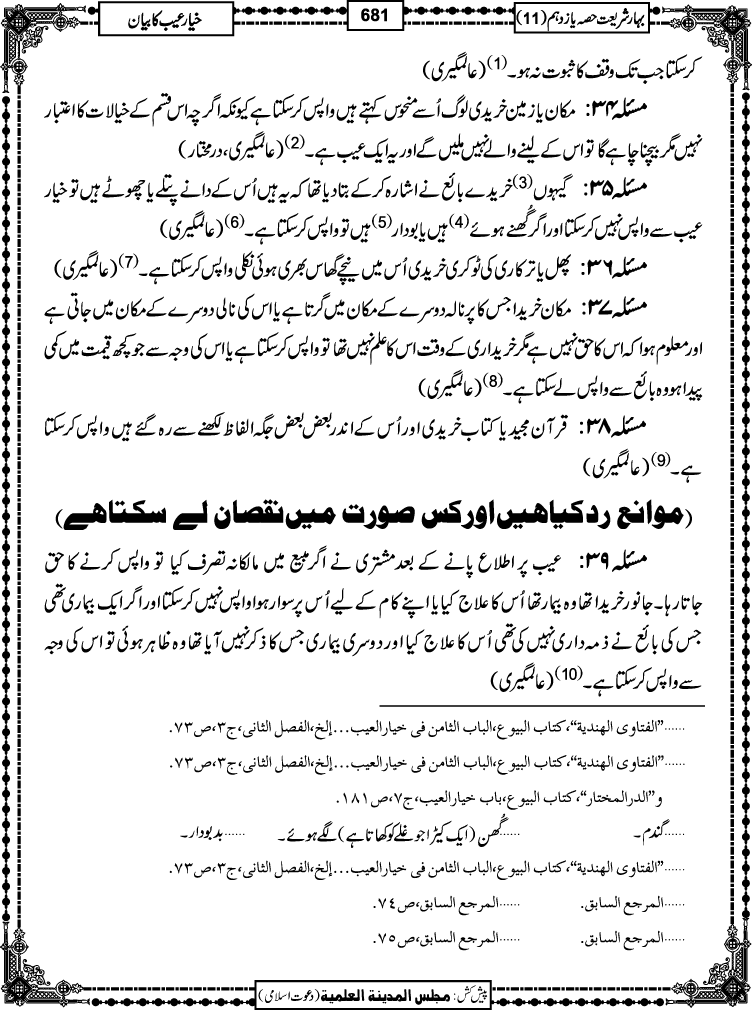 بہارشریعت حصہ یازدہم (11) 681 خیار عیب کا بیان
کرسکتا جب تک وقف کا ثبوت نہ ہو۔(1) (عالمگیری)
مسئلہ ۳۴: مکان یا زمین خریدی لوگ اُسے منحوس کہتے ہیں واپس کرسکتا ہے کیونکہ اگرچہ اس قسم کے خیالات کا اعتبار
نہیں مگر بیچنا چاہے گا تو اس کے لینے والے نہیں ملیں گے اور یہ ایک عیب ہے۔(2) (عالمگیری، درمختار)
مسئلہ ۳۵: گیہوں(3) خریدے بائع نے اشارہ کرکے بتادیا تھا کہ یہ ہیں اُس کے دانے پتلے یا چھوٹے ہیں تو خیار
عیب سے واپس نہیں کرسکتا اور اگر گُھنے ہوئے(4) ہیں یا بودار(5) ہیں تو واپس کرسکتا ہے۔(6) (عالمگیری)
مسئلہ ۳۶: پھل یا ترکاری کی ٹوکری خریدی اُس میں نیچے گھاس بھری ہوئی نکلی واپس کرسکتا ہے۔(7) (عالمگیری)
مسئلہ ۳۷: مکان خریدا جس کا پرنالہ دوسرے کے مکان میں گرتا ہے یا اس کی نالی دوسرے کے مکان میں جاتی ہے
اور معلوم ہوا کہ اس کا حق نہیں ہے مگر خریداری کے وقت اس کا علم نہیں تھا تو واپس کرسکتا ہے یا اس کی وجہ سے جو کچھ قیمت میں کمی
پیدا ہو وہ بائع سے واپس لے سکتا ہے۔(8) (عالمگیری)
مسئلہ ۳۸: قرآن مجید یا کتاب خریدی اور اُس کے اندر بعض بعض جگہ الفاظ لکھنے سے رہ گئے ہیں واپس کرسکتا
ہے۔(9) (عالمگیری)
(موانع ردکیاھیں اورکس صورت میں نقصان لے سکتاھے)
مسئلہ ۳۹: عیب پر اطلاع پانے کے بعد مشتری نے اگر مبیع میں مالکانہ تصرف کیا تو واپس کرنے کا حق
جاتا رہا۔ جانور خریدا تھا وہ بیمار تھا اُس کا علاج کیا یا اپنے کام کے لیے اُس پر سوار ہوا واپس نہیں کرسکتا اور اگر ایک بیماری تھی
جس کی بائع نے ذمہ داری نہیں کی تھی اُس کا علاج کیا اور دوسری بیماری جس کا ذکر نہیں آیا تھا وہ ظاہر ہوئی تو اس کی وجہ
سے واپس کرسکتا ہے۔(10) (عالمگیری)
......"الفتاوی الھندیة"،کتاب البیوع،الباب الثامن فی خیارالعیب...إلخ،الفصل الثانی،ج۳،ص۷۳.
......"الفتاوی الھندیة"،کتاب البیوع،الباب الثامن فی خیارالعیب...إلخ،الفصل الثانی،ج۳،ص۷۳.
و"الدرالمختار"،کتاب البیوع،باب خیارالعیب،ج۷،ص۱۸۱.
......گندم۔ ......گُھن (ایک کیڑا جو غلے کو کھاتا ہے) لگے ہوئے۔ ......بدبودار۔
......"الفتاوی الھندیة"،کتاب البیوع،الباب الثامن فی خیارالعیب...إلخ،الفصل الثانی،ج۳،ص۷۳.
......المرجع السابق. ......المرجع السابق،ص۷۴.
......المرجع السابق. ......المرجع السابق،ص۷۵.
پیش کش: مجلس المدینة العلمیة (دعوت اسلامی)